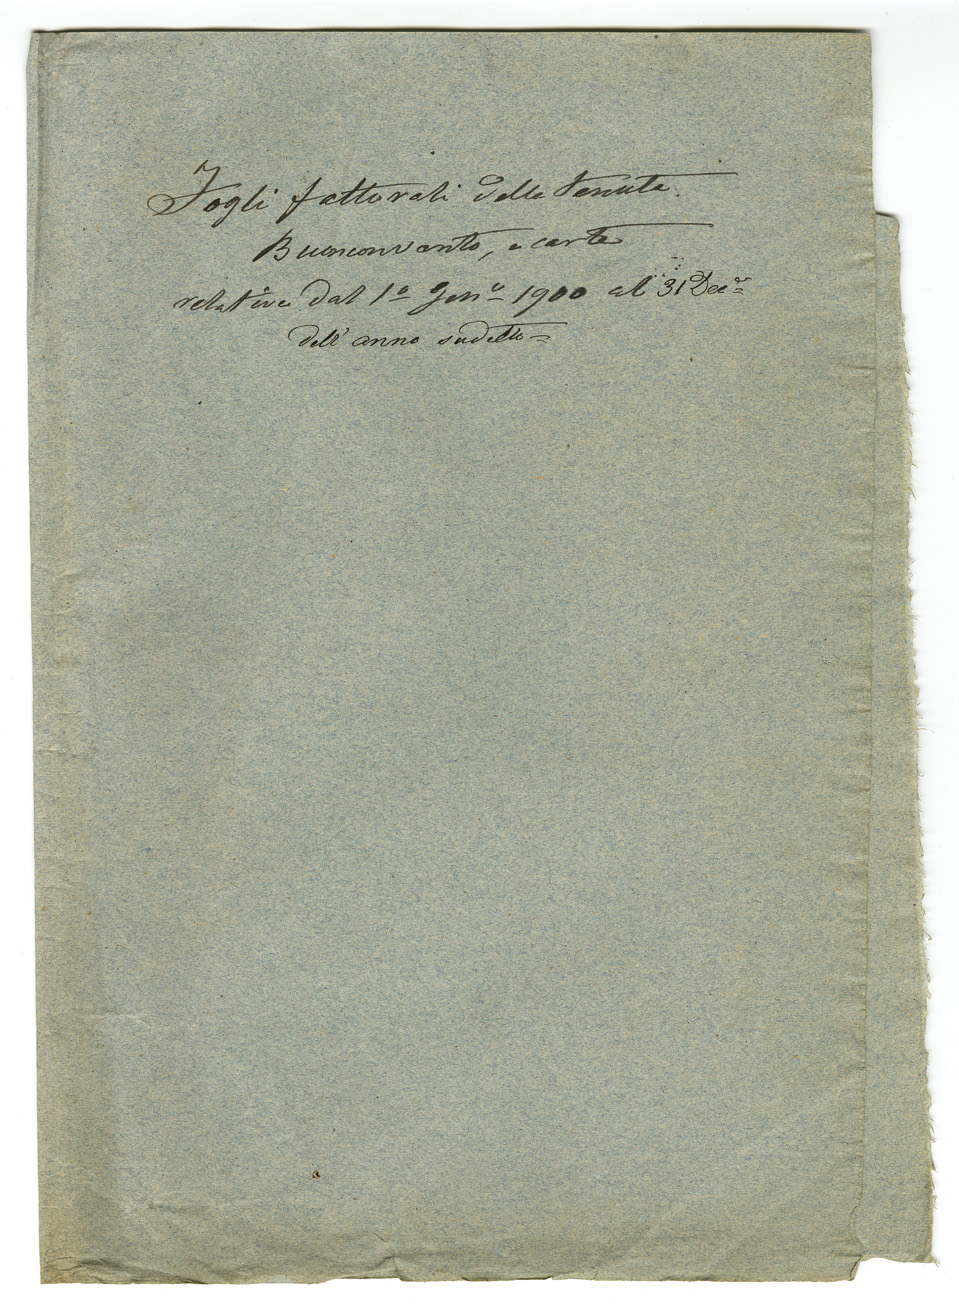 Fogli fattorali della Tenuta
Buonconvento, e carte
relative dal 1º Genº 1900 al 31 Decº
dell' anno sudetto =